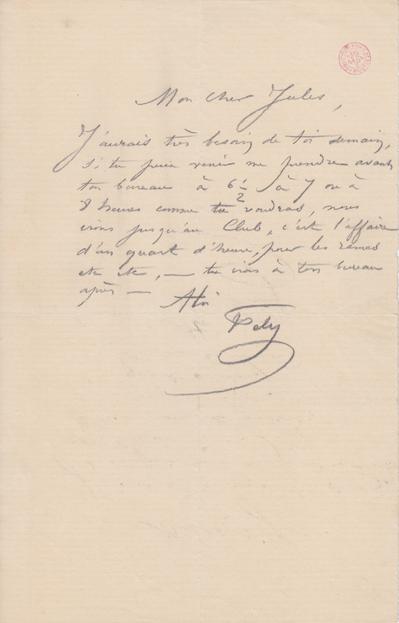 Mon cher Jules,
J'aurais très besoin de toi demain,
si tu peux venir me prendre avant
ton bureau à 6 1/2 à 7 ou à
8 heures comme tu voudras, nous
irons jusqu'au Club, c'est l'affaire
d'un quart d'heure, pour les rames
etc etc, — tu iras à ton bureau
après — A toi
Fély